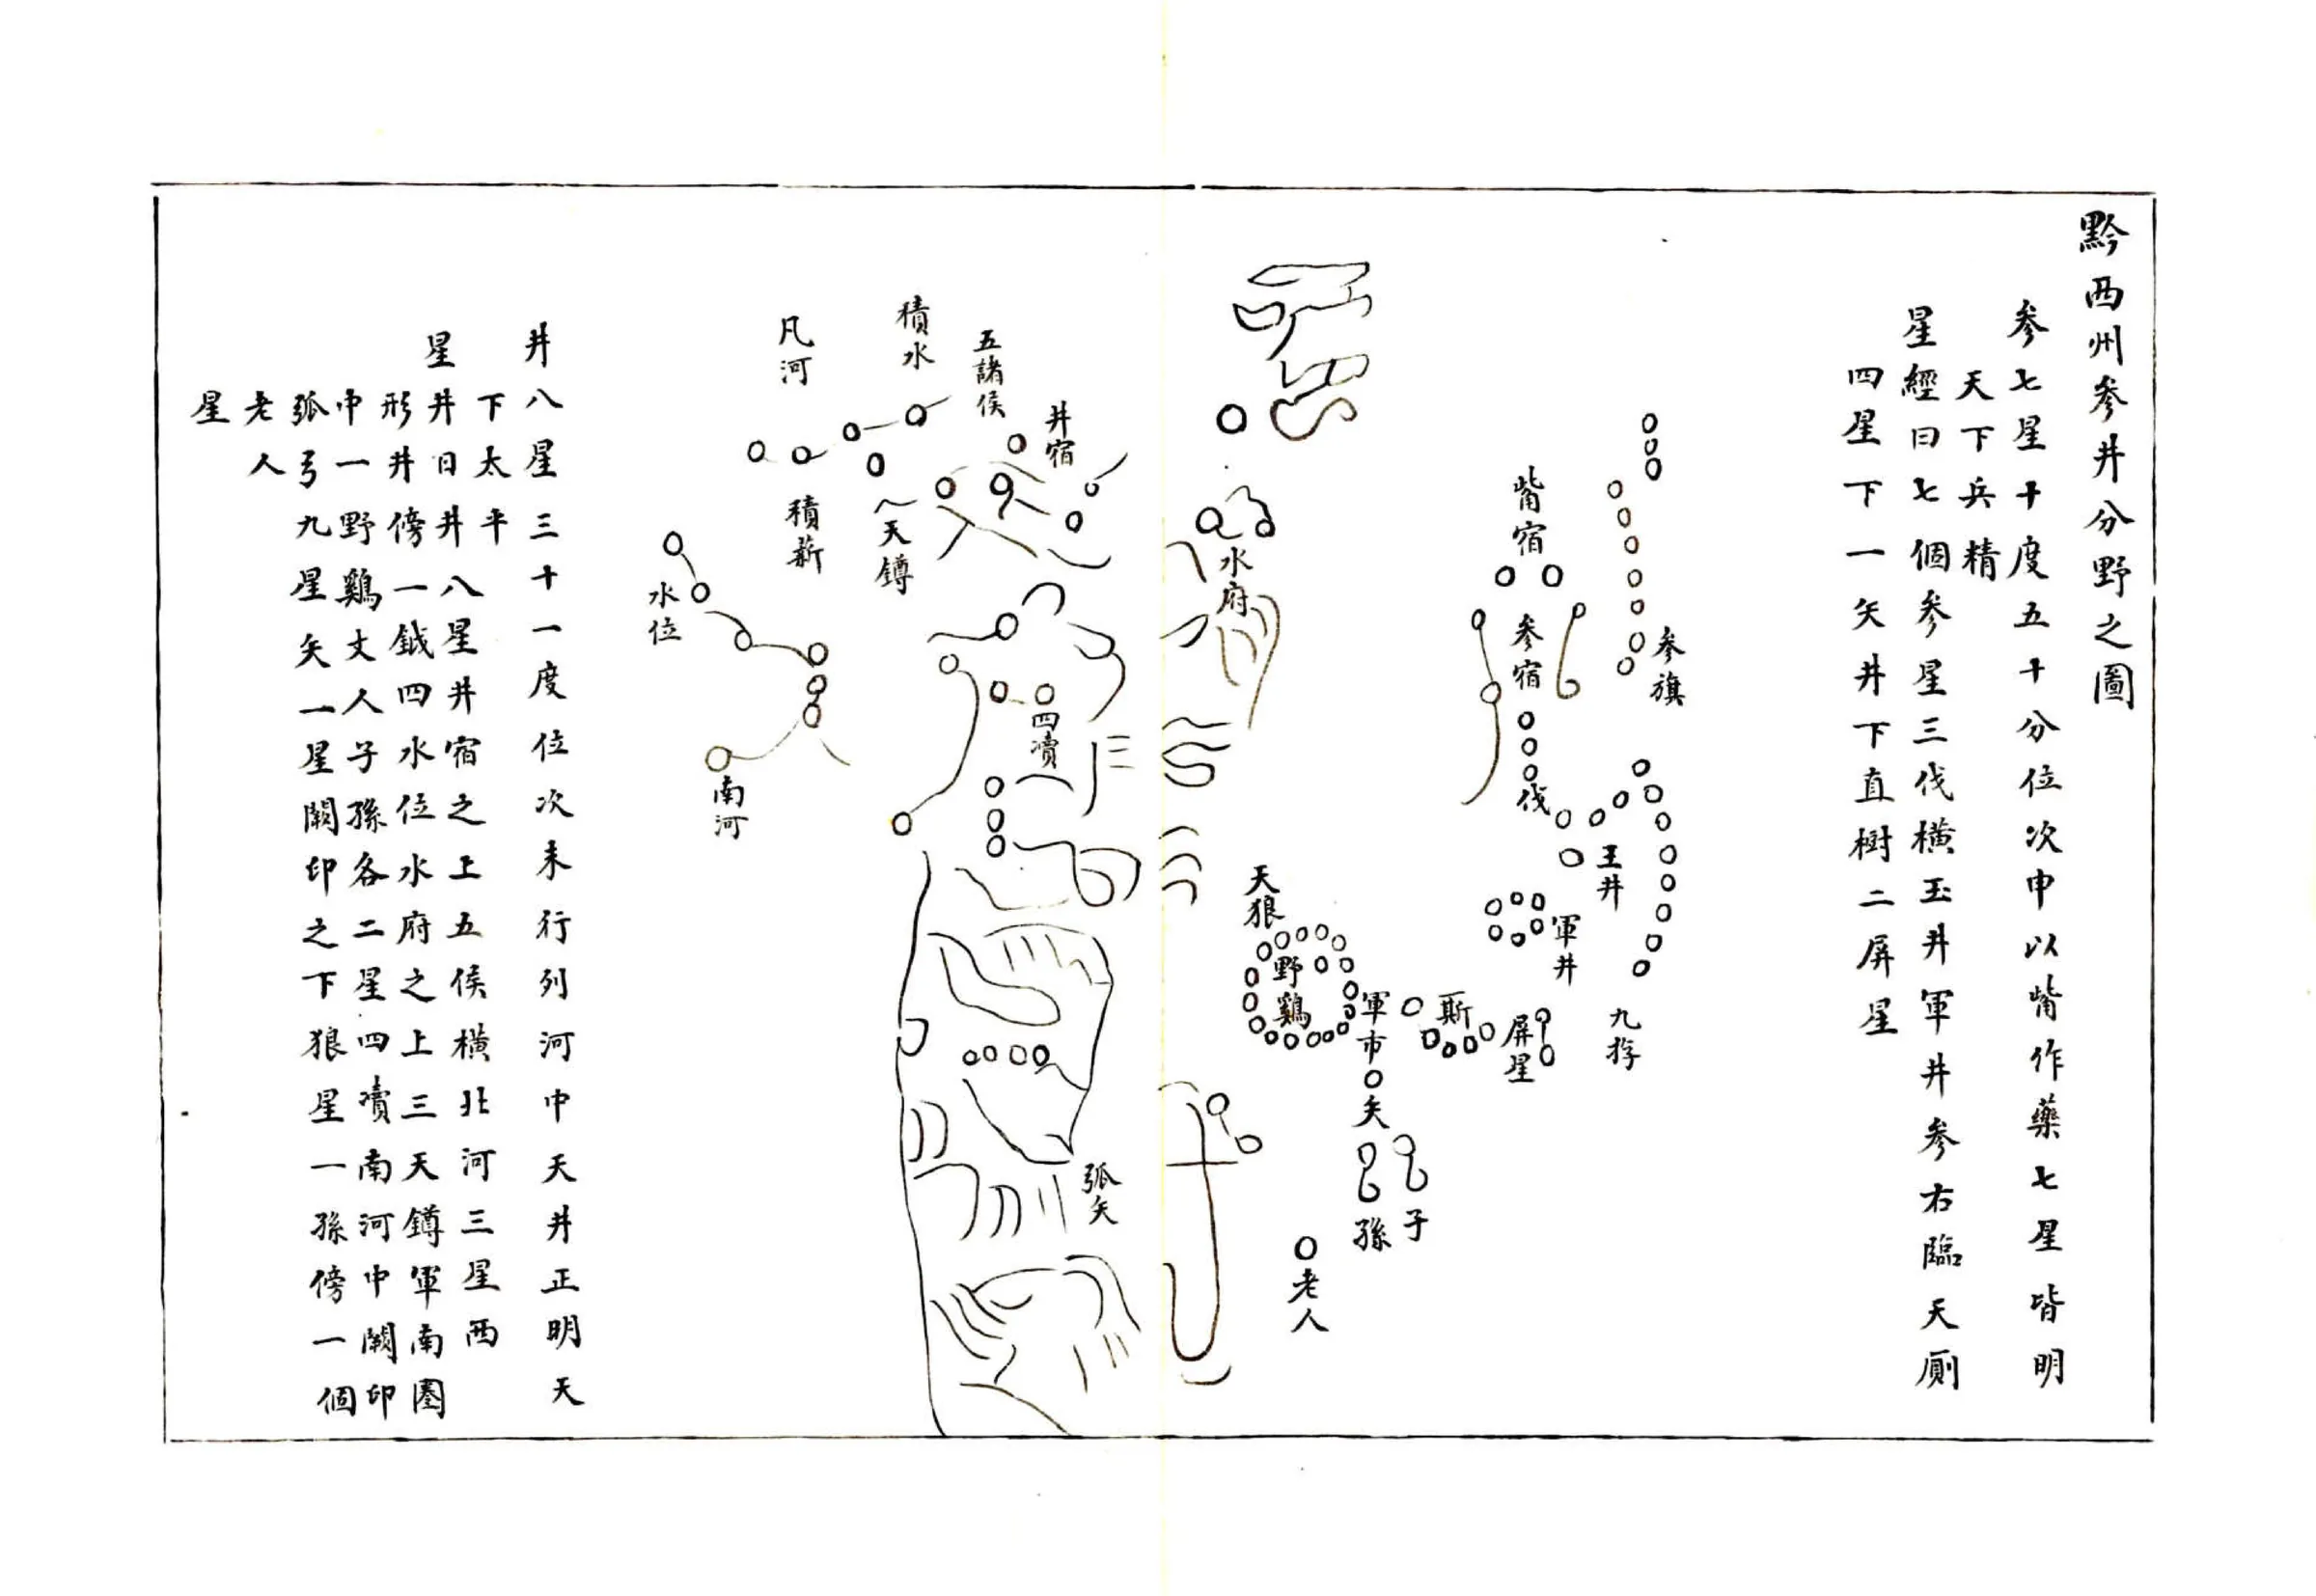 黔西州參井分野之圖
參七星十度五十分位次申以觜作藥七星皆明
天下兵精
星經曰七個參星三伐橫玉井軍井參右臨天厠
四星下一矢井下直樹二屏星
參旗
九斿
觜宿
參宿
伐
王井
軍井
屏星
斯
軍市
矢
子
孫
天狼
野鷄
老人
水府
井宿
五諸侯
積水
天鐏
四瀆
弧矢
凡河
積薪
水位
南河
井八星三十一度位次未行列河中天井正明天
下太平
星井曰井八星井宿之上五侯橫北河三星西
形井傍一鉞四水位水府之上三天鐏軍南圏
中一野鷄丈人子孫各二星四瀆南河中闕印
弧弓九星矢一星闕印之下狼星一孫傍一個
老人
星